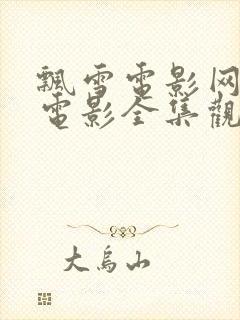 飄雪電影网
電影全集觀
大烏山